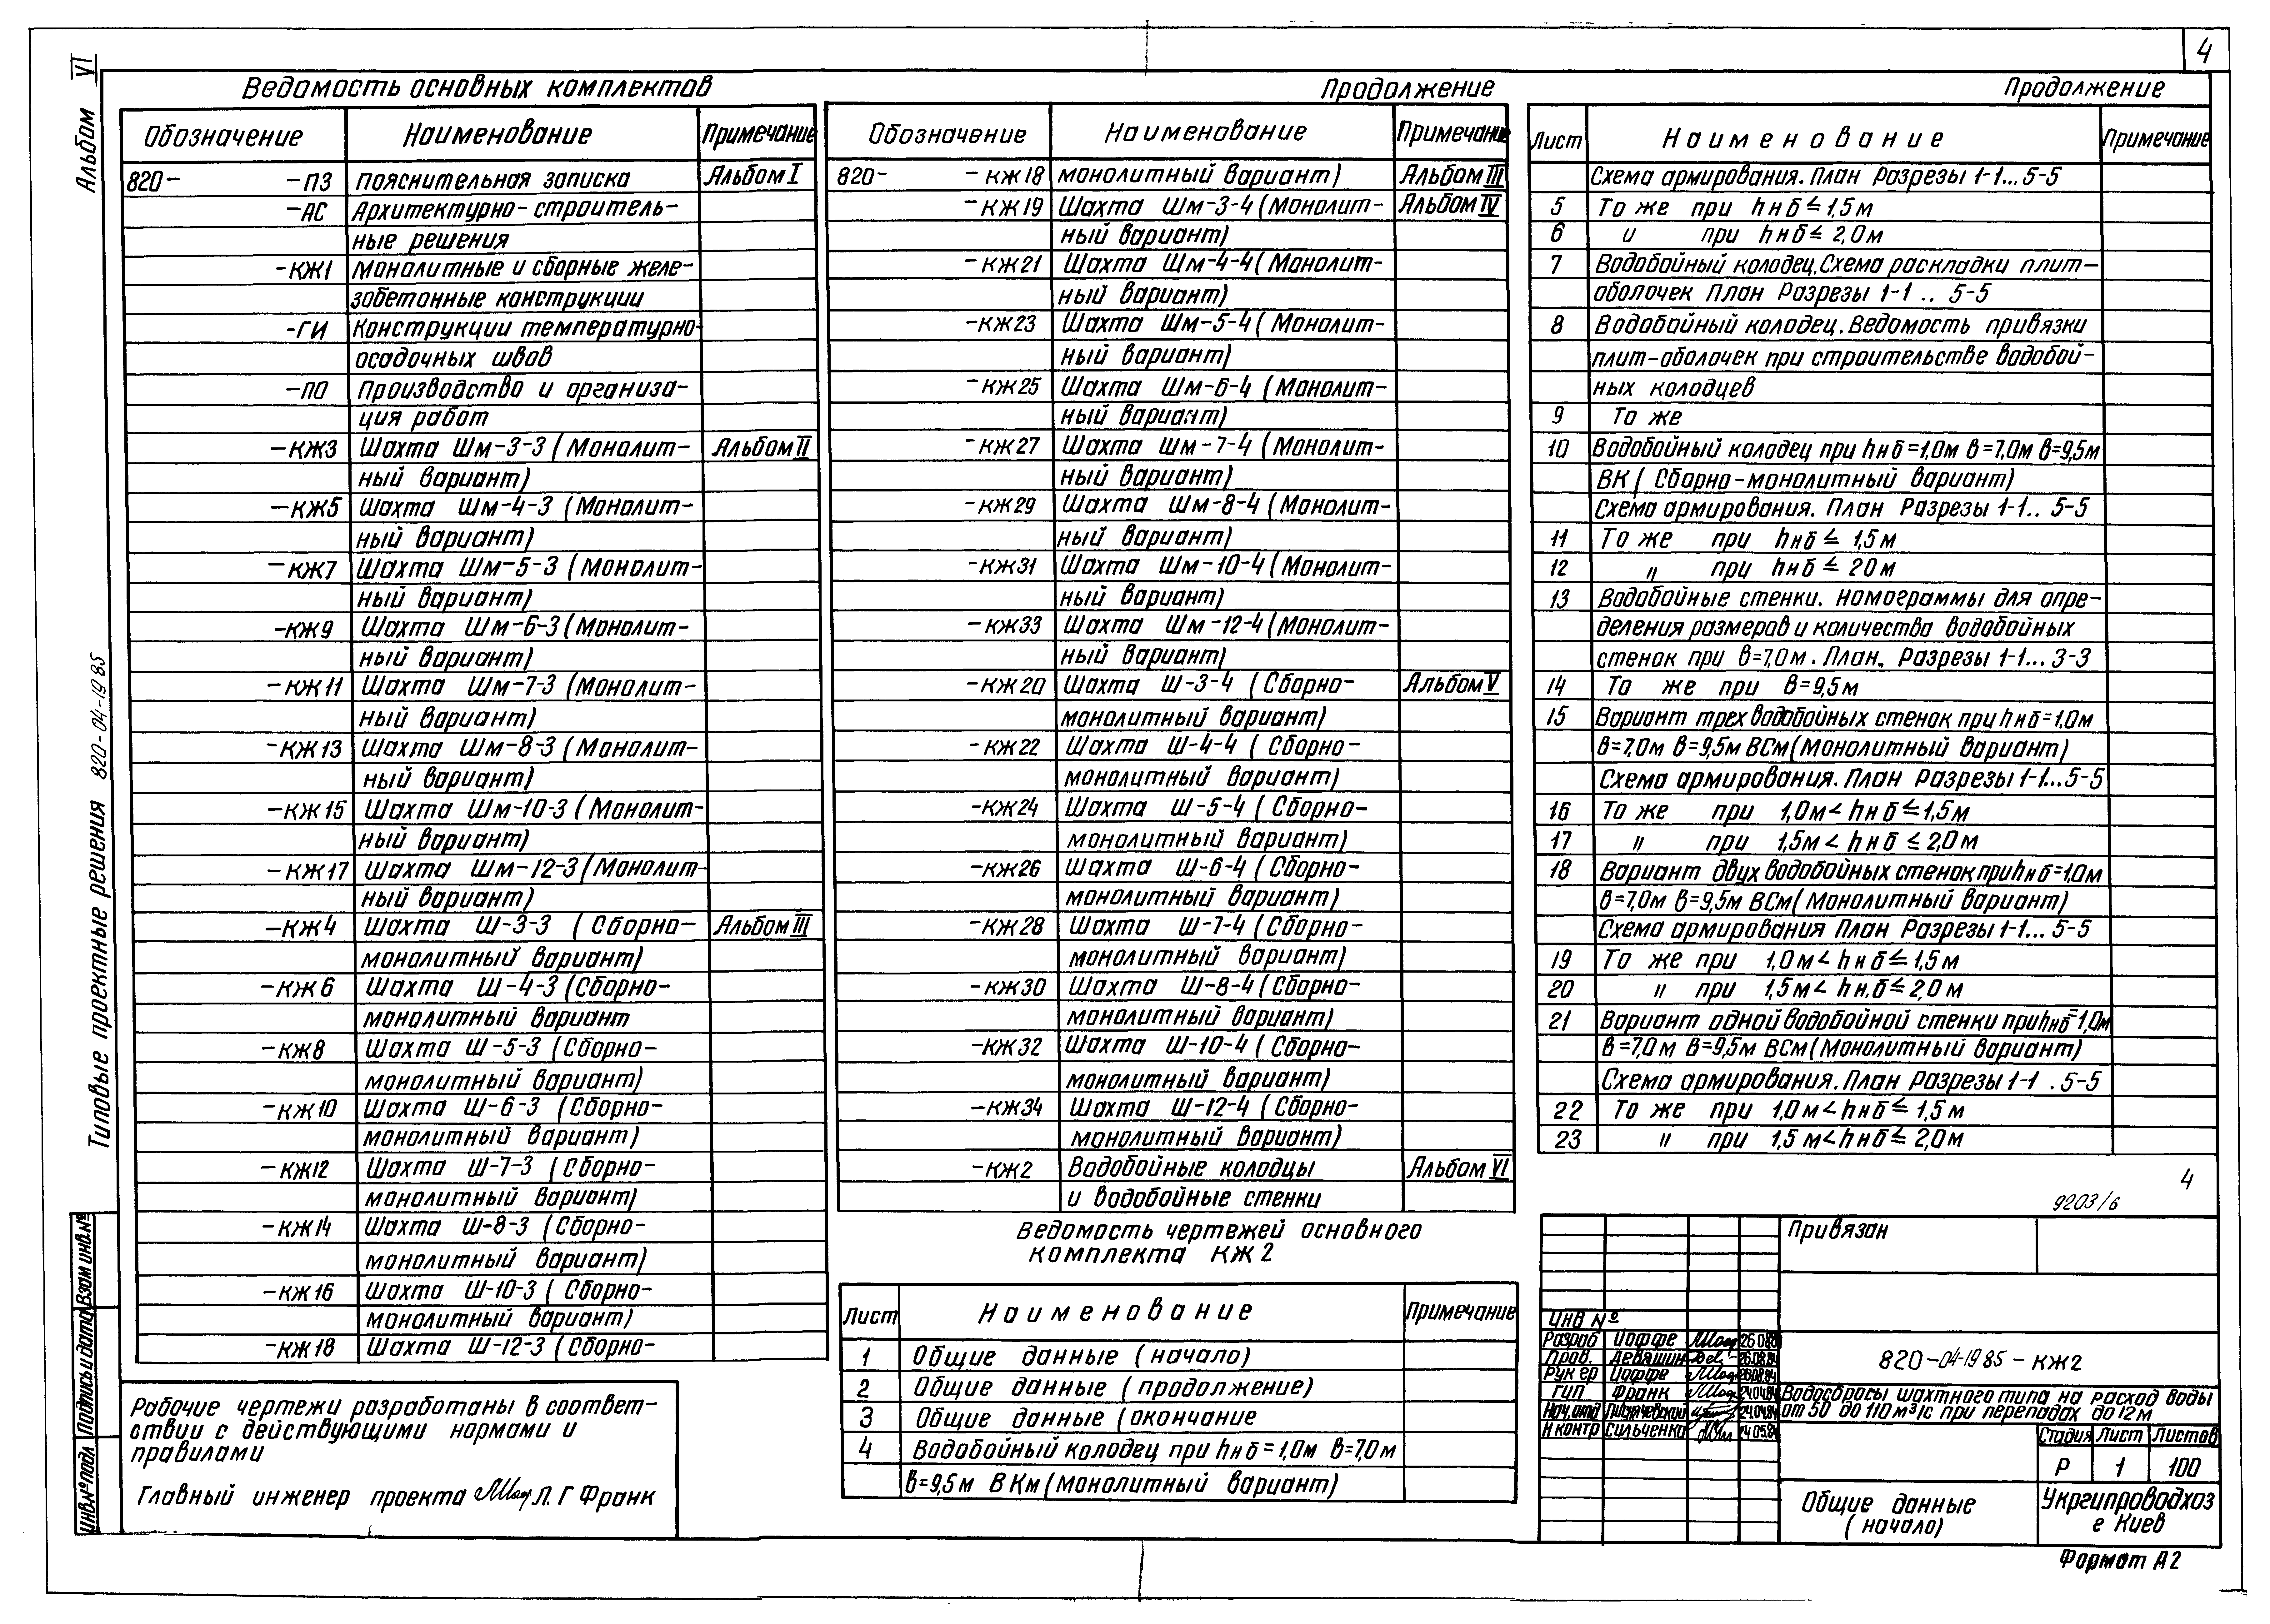 4
Альбом VI
Типовые проектные решения 820-04-1985
Ведомость основных комплектов
Обозначение Наименование Примечание
820- -ПЗ Пояснительная записка Альбом I
-АС Архитектурно-строитель-
ные решения
-КЖ1 Монолитные и сборные желе-
зобетонные конструкции
-ГИ Конструкции температурно-
осадочных швов
-ПО Производство и организа-
ция работ
-КЖ3 Шахта Шм-3-3 (Монолит- Альбом II
ный вариант)
-КЖ5 Шахта Шм-4-3 (Монолит-
ный вариант)
-КЖ7 Шахта Шм-5-3 (Монолит-
ный вариант)
-КЖ9 Шахта Шм-6-3 (Монолит-
ный вариант)
-КЖ11 Шахта Шм-7-3 (Монолит-
ный вариант)
-КЖ13 Шахта Шм-8-3 (Монолит-
ный вариант)
-КЖ15 Шахта Шм-10-3 (Монолит-
ный вариант)
-КЖ17 Шахта Шм-12-3 (Монолит-
ный вариант)
-КЖ4 Шахта Ш-3-3 (Сборно- Альбом III
монолитный вариант)
-КЖ6 Шахта Ш-4-3 (Сборно-
монолитный вариант
-КЖ8 Шахта Ш-5-3 (Сборно-
монолитный вариант)
-КЖ10 Шахта Ш-6-3 (Сборно-
монолитный вариант)
-КЖ12 Шахта Ш-7-3 (Сборно-
монолитный вариант)
-КЖ14 Шахта Ш-8-3 (Сборно-
монолитный вариант)
-КЖ16 Шахта Ш-10-3 (Сборно-
монолитный вариант)
-КЖ18 Шахта Ш-12-3 (Сборно-
Рабочие чертежи разработаны в соответ-
ствии с действующими нормами и
правилами
Главный инженер проекта Л. Г Франк
Продолжение
Обозначение Наименование Примечание
820- -КЖ18 монолитный вариант) Альбом III
-КЖ19 Шахта Шм-3-4 (Монолит- Альбом IV
ный вариант)
-КЖ21 Шахта Шм-4-4 (Монолит-
ный вариант)
-КЖ23 Шахта Шм-5-4 (Монолит-
ный вариант)
-КЖ25 Шахта Шм-6-4 (Монолит-
ный вариант)
-КЖ27 Шахта Шм-7-4 (Монолит-
ный вариант)
-КЖ29 Шахта Шм-8-4 (Монолит-
ный вариант)
-КЖ31 Шахта Шм-10-4 (Монолит-
ный вариант)
-КЖ33 Шахта Шм-12-4 (Монолит-
ный вариант)
-КЖ20 Шахта Ш-3-4 (Сборно- Альбом V
монолитный вариант)
-КЖ22 Шахта Ш-4-4 (Сборно-
монолитный вариант)
-КЖ24 Шахта Ш-5-4 (Сборно-
монолитный вариант)
-КЖ26 Шахта Ш-6-4 (Сборно-
монолитный вариант)
-КЖ28 Шахта Ш-7-4 (Сборно-
монолитный вариант)
-КЖ30 Шахта Ш-8-4 (Сборно-
монолитный вариант)
-КЖ32 Шахта Ш-10-4 (Сборно-
монолитный вариант)
-КЖ34 Шахта Ш-12-4 (Сборно-
монолитный вариант)
-КЖ2 Водобойные колодцы Альбом VI
и водобойные стенки
Ведомость чертежей основного
комплекта КЖ2
Лист Наименование Примечание
1 Общие данные (начало)
2 Общие данные (продолжение)
3 Общие данные (окончание
4 Водобойный колодец при hнб=1,0м в=7,0м
в=9,5м ВКм (Монолитный вариант)
Продолжение
Лист Наименование Примечание
Схема армирования. План Разрезы 1-1... 5-5
5 То же при hнб ≤ 1,5м
6 и при hнб ≤ 2,0м
7 Водобойный колодец. Схема раскладки плит-
оболочек План Разрезы 1-1 .. 5-5
8 Водобойный колодец. Ведомость привязки
плит-оболочек при строительстве водобой-
ных колодцев
9 То же
10 Водобойный колодец при hнб=1,0м в=7,0м в=9,5м
ВК (Сборно-монолитный вариант)
Схема армирования. План Разрезы 1-1.. 5-5
11 То же при hнб ≤ 1,5м
12 " при hнб ≤ 20м
13 Водобойные стенки. Номограммы для опре-
деления размеров и количества водобойных
стенок при в=7,0м. План. Разрезы 1-1... 3-3
14 То же при в=9,5м
15 Вариант трех водобойных стенок при hнб=1,0м
в=7,0м в=9,5м ВСм (Монолитный вариант)
Схема армирования. План Разрезы 1-1...5-5
16 То же при 1,0м < hнб ≤ 1,5м
17 " при 1,5м < hнб ≤ 2,0м
18 Вариант двух водобойных стенок при hнб=1,0м
в=7,0м в=9,5м ВСм (Монолитный вариант)
Схема армирования План Разрезы 1-1... 5-5
19 То же при 1,0м < hнб ≤ 1,5м
20 " при 1,5м < hн,б ≤ 2,0м
21 Вариант одной водобойной стенки при hнб=1,0м
в=7,0м в=9,5м ВСм (Монолитный вариант)
Схема армирования. План Разрезы 1-1 . 5-5
22 То же при 1,0м < hнб ≤ 1,5м
23 " при 1,5м < hнб ≤ 2,0м
4
9203/6
Привязан
Инв №
Разраб Иоффе 26.08.84
Пров. Девяшин 26.08.84
Рук гр Иоффе 26.08.84
ГИП Франк 24.04.84
Нач.отд 24.04.84
Н контр Сильченко 24.05.84
820-04-1985-КЖ2
Водосбросы шахтного типа на расход воды
от 50 до 110 м³/с при перепадах до 12м
Стадия Лист Листов
Р 1 100
Общие данные
(начало)
Укргипроводхоз
г Киев
Формат А2
Взам инв.№
Подпись и дата
Инв.№ подл